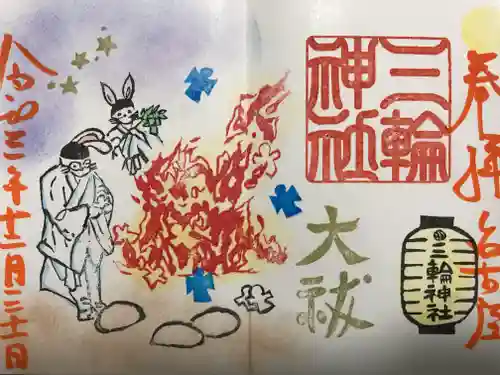 奉拝 名古屋
三輪
神社
大祓
三輪神社
令和三年十二月三十一日